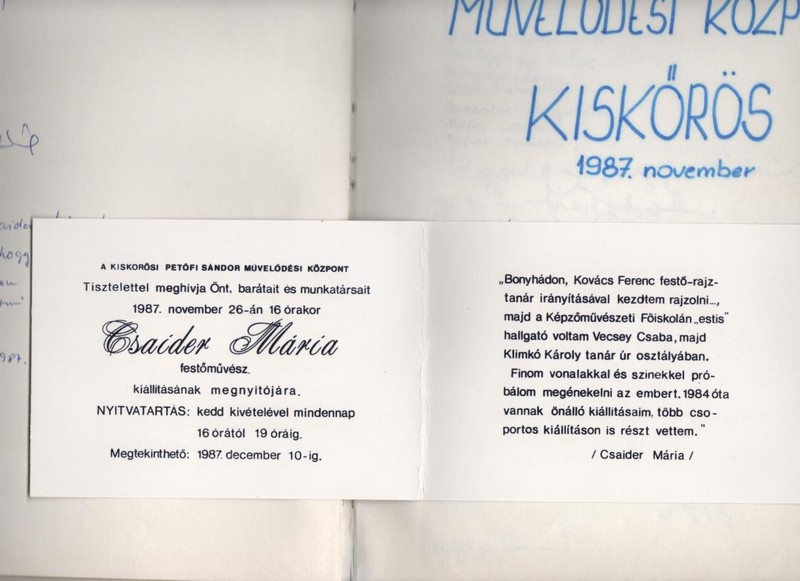 MŰVELŐDÉSI KÖZP
KISKŐRÖS
1987. november
hogy
1987.
A KISKŐRÖSI PETŐFI SÁNDOR MŰVELŐDÉSI KÖZPONT
Tisztelettel meghívja Önt, barátait és munkatársait
1987. november 26-án 16 órakor
Csaider Mária
festőművész
kiállításának megnyitójára.
NYITVATARTÁS: kedd kivételével mindennap
16 órától 19 óráig.
Megtekinthető: 1987. december 10-ig.
„Bonyhádon, Kovács Ferenc festő-rajz-
tanár irányításával kezdtem rajzolni...,
majd a Képzőművészeti Főiskolán „estis"
hallgató voltam Vecsey Csaba, majd
Klimkó Károly tanár úr osztályában.
Finom vonalakkal és szinekkel pró-
bálom megénekelni az embert. 1984 óta
vannak önálló kiállitásaim, több cso-
portos kiállításon is részt vettem."
/ Csaider Mária /